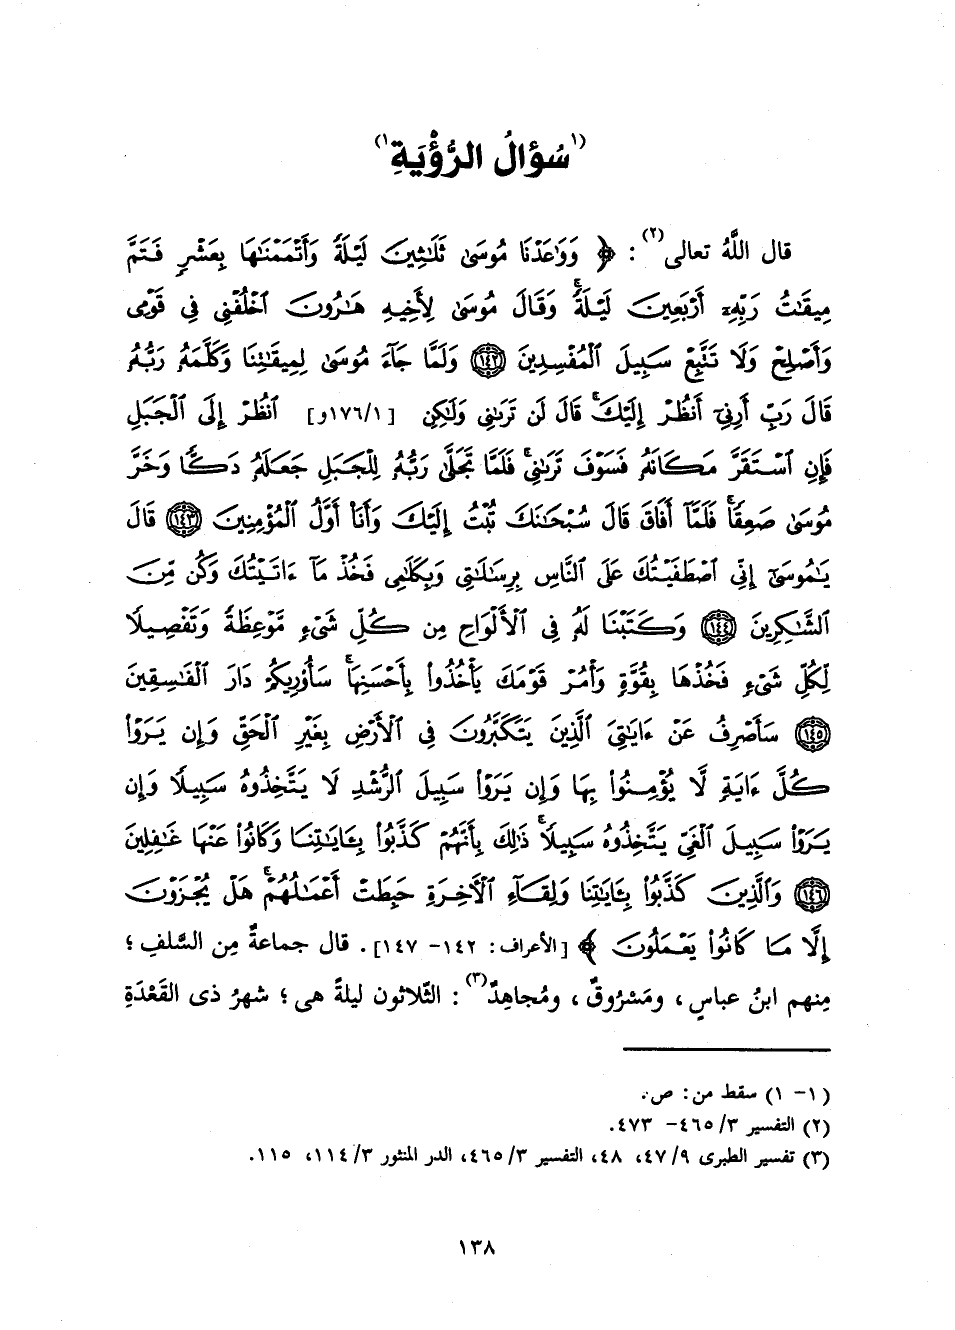 (١سُؤالُ الرُّؤْيَةِ١)
قال اللَّهُ تعالى(٢) : ﴿ وَوَٰعَدْنَا مُوسَىٰ ثَلَٰثِينَ لَيْلَةً وَأَتْمَمْنَٰهَا بِعَشْرٍ فَتَمَّ
مِيقَٰتُ رَبِّهِۦٓ أَرْبَعِينَ لَيْلَةًۚ وَقَالَ مُوسَىٰ لِأَخِيهِ هَٰرُونَ ٱخْلُفْنِى فِى قَوْمِى
وَأَصْلِحْ وَلَا تَتَّبِعْ سَبِيلَ ٱلْمُفْسِدِينَ ١٤٢ وَلَمَّا جَآءَ مُوسَىٰ لِمِيقَٰتِنَا وَكَلَّمَهُۥ رَبُّهُۥ
قَالَ رَبِّ أَرِنِىٓ أَنظُرْ إِلَيْكَۚ قَالَ لَن تَرَىٰنِى وَلَٰكِنِ [١٧٦/١و] ٱنظُرْ إِلَى ٱلْجَبَلِ
فَإِنِ ٱسْتَقَرَّ مَكَانَهُۥ فَسَوْفَ تَرَىٰنِىۚ فَلَمَّا تَجَلَّىٰ رَبُّهُۥ لِلْجَبَلِ جَعَلَهُۥ دَكًّا وَخَرَّ
مُوسَىٰ صَعِقًاۚ فَلَمَّآ أَفَاقَ قَالَ سُبْحَٰنَكَ تُبْتُ إِلَيْكَ وَأَنَا۠ أَوَّلُ ٱلْمُؤْمِنِينَ ١٤٣ قَالَ
يَٰمُوسَىٰٓ إِنِّى ٱصْطَفَيْتُكَ عَلَى ٱلنَّاسِ بِرِسَٰلَٰتِى وَبِكَلَٰمِى فَخُذْ مَآ ءَاتَيْتُكَ وَكُن مِّنَ
ٱلشَّٰكِرِينَ ١٤٤ وَكَتَبْنَا لَهُۥ فِى ٱلْأَلْوَاحِ مِن كُلِّ شَىْءٍ مَّوْعِظَةً وَتَفْصِيلًا
لِّكُلِّ شَىْءٍ فَخُذْهَا بِقُوَّةٍ وَأْمُرْ قَوْمَكَ يَأْخُذُوا۟ بِأَحْسَنِهَاۚ سَأُو۟رِيكُمْ دَارَ ٱلْفَٰسِقِينَ
١٤٥ سَأَصْرِفُ عَنْ ءَايَٰتِىَ ٱلَّذِينَ يَتَكَبَّرُونَ فِى ٱلْأَرْضِ بِغَيْرِ ٱلْحَقِّ وَإِن يَرَوْا۟
كُلَّ ءَايَةٍ لَّا يُؤْمِنُوا۟ بِهَا وَإِن يَرَوْا۟ سَبِيلَ ٱلرُّشْدِ لَا يَتَّخِذُوهُ سَبِيلًا وَإِن
يَرَوْا۟ سَبِيلَ ٱلْغَىِّ يَتَّخِذُوهُ سَبِيلًاۚ ذَٰلِكَ بِأَنَّهُمْ كَذَّبُوا۟ بِـَٔايَٰتِنَا وَكَانُوا۟ عَنْهَا غَٰفِلِينَ
١٤٦ وَٱلَّذِينَ كَذَّبُوا۟ بِـَٔايَٰتِنَا وَلِقَآءِ ٱلْءَاخِرَةِ حَبِطَتْ أَعْمَٰلُهُمْۚ هَلْ يُجْزَوْنَ
إِلَّا مَا كَانُوا۟ يَعْمَلُونَ ﴾ [الأعراف: ١٤٢- ١٤٧]. قال جماعةٌ مِن السَّلفِ ؛
مِنهم ابنُ عباسٍ ، ومَسْرُوقٌ ، ومُجاهِدٌ(٣) : الثَّلاثون ليلةً هى ؛ شهرُ ذى القَعْدَةِ
(١- ١) سقط من: ص.
(٢) التفسير ٣/ ٤٦٥- ٤٧٣.
(٣) تفسير الطبرى ٩/ ٤٧، ٤٨، التفسير ٣/ ٤٦٥، الدر المنثور ٣/ ١١٤، ١١٥.
١٣٨